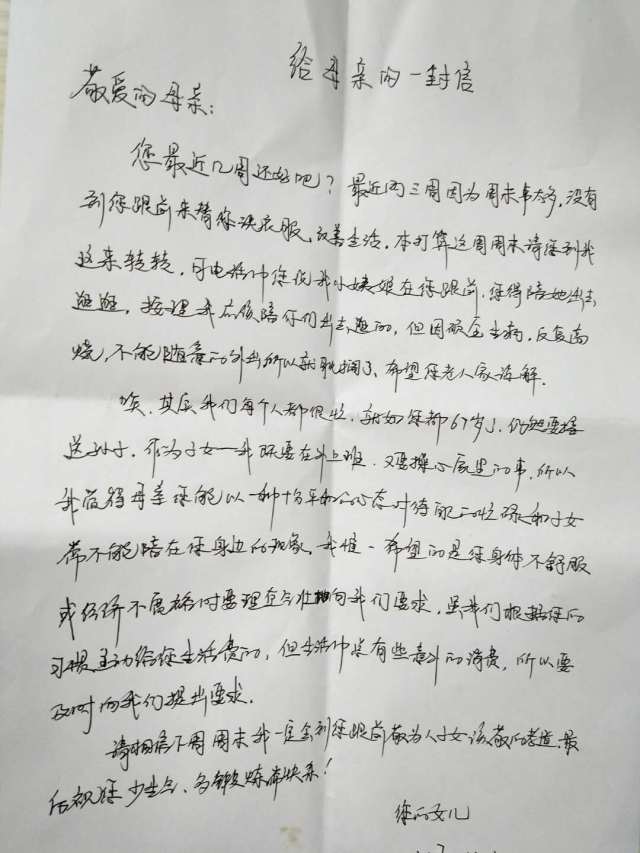 给母亲的一封信
敬爱的母亲：
您最近几周还好吧？最近两三周因为周末事太多，没有
到您跟前来替您洗衣服，改善生活，本打算这周周末请您到我
这来转转，可电话中您说我小姨娘在您跟前，您得陪她出去
逛逛，按理我应该陪你们出去逛的，但因 生病，反复高
烧，不能随意的外出所以就耽搁了，希望您老人家谅解．
唉，其实我们每个人都很忙，就如您都67岁了，仍然要接
送孙子，作为子女——我既要在外上班，又要操心家里的事，所以
我觉得母亲您能以一种十分平和的心态对待 的忙碌和子女
常不能陪在您身边的现象，我惟一希望的是您身体不舒服
或经济不宽裕时要理直气壮地向我们要求，虽我们根据您的
习惯主动给您生活费的，但生活中总有些意外的消费，所以要
及时向我们提出要求．
请相信下周周末我一定会到您跟前敬为人子女该敬的孝道，最
后祝您少生气、多锻炼 快乐！
您的女儿